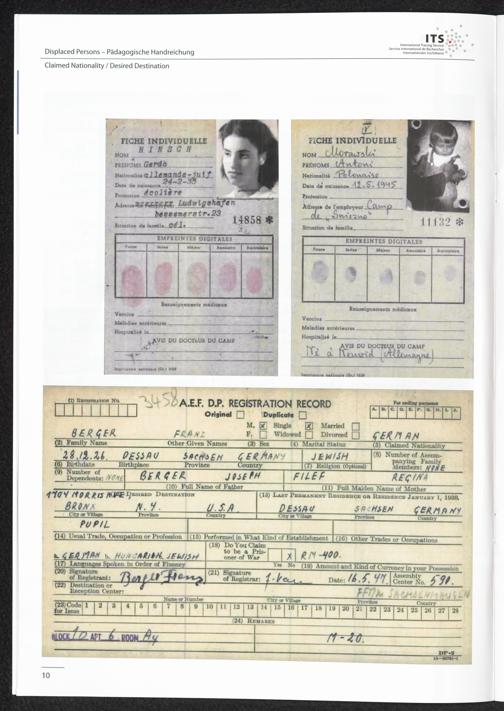 Displaced Persons – Pädagogische Handreichung
Claimed Nationality / Desired Destination
ITS
International Tracing Service
Service International de Recherches
Internationaler Suchdienst
FICHE INDIVIDUELLE
NOM HIRSCH
PRÉNOMS Gerda
Nationalité allemande-juif
Date de naissance 24-2-33
Profession écolière
Adresse Ludwigshafen
bessemerstr.23
Situation de famille cél.
14858 *
EMPREINTES DIGITALES
Pouce Index Majeur Annulaire Auriculaire
Renseignements médicaux
Vaccins
Maladies antérieures
Hospitalisé le
AVIS DU DOCTEUR DU CAMP
FICHE INDIVIDUELLE
NOM Morawski
PRÉNOMS Antoni
Nationalité Polonaise
Date de naissance 12.5.1945
Profession
Adresse de l'employeur Camp
de „Gniezno"
Situation de famille
11132 *
EMPREINTES DIGITALES
Pouce Index Majeur Annulaire Auriculaire
Renseignements médicaux
Vaccins
Maladies antérieures
Hospitalisé le
AVIS DU DOCTEUR DU CAMP
Né à Neuwied (Allemagne)
(1) REGISTRATION NO.
3458
A.E.F. D.P. REGISTRATION RECORD
For coding purposes
A. B. C. D. E. F. G. H. I. J.
Original Duplicate
M. X Single X Married
F. Widowed Divorced
BERGER FRANZ GERMAN
(2) Family Name Other Given Names (3) Sex (4) Marital Status (5) Claimed Nationality
28.12.26. DESSAU SACHSEN GERMANY JEWISH
(6) Birthdate Birthplace Province Country (7) Religion (Optional)
(8) Number of Accompanying Family Members: NONE
(9) Number of Dependents: NONE
BERGER JOSEPH FILEF REGINA
(10) Full Name of Father (11) Full Maiden Name of Mother
DESIRED DESTINATION
(13) LAST PERMANENT RESIDENCE OR RESIDENCE JANUARY 1, 1938.
BRONX N.Y. U.S.A DESSAU SACHSEN GERMANY
City or Village Province Country City or Village Province Country
PUPIL
(14) Usual Trade, Occupation or Profession (15) Performed in What Kind of Establishment (16) Other Trades or Occupations
GERMAN HUNGARIAN JEWISH
(17) Languages Spoken in Order of Fluency
(18) Do You Claim to be a Prisoner of War
X
Yes No
RM-400.
(19) Amount and Kind of Currency in your Possession
(20) Signature of Registrant: Berger Franz
(21) Signature of Registrar:
Date: 16.5.47.
Assembly Center No. 590.
(22) Destination or Reception Center:
Name or Number City or Village Province Country
(23) Code for Issue 1 2 3 4 5 6 7 8 9 10 11 12 13 14 15 16 17 18 19 20 21 22 23 24 25 26 27 28
(24) REMARKS
BLOCK 10 APT 6 ROOM
M-20.
DP-2
10